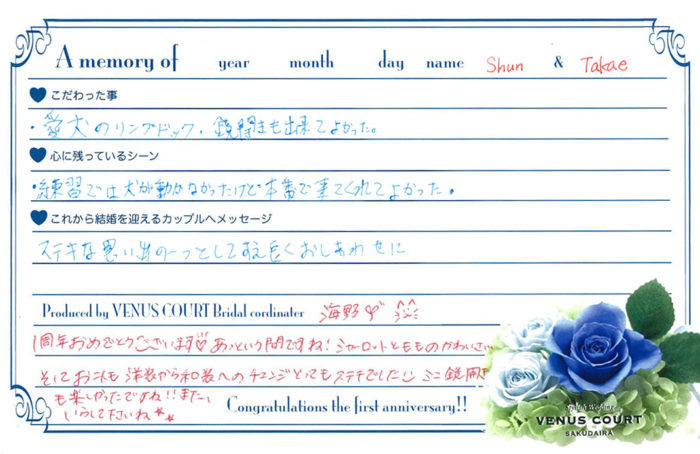 A memory of year month day name Shun & Takae
こだわった事
・愛犬のリングドッグ、鏡開きも出来てよかった。
心に残っているシーン
・練習では犬が動かなかったけど本番で来てくれてよかった。
これから結婚を迎えるカップルへメッセージ
ステキな思い出の一つとして末長くおしあわせに
Produced by VENUS COURT Bridal cordinater 海野♡
1周年おめでとうございます♡あっという間ですね!シャーロットとももかわいさ
そしてお二人の洋装から和装へのチェンジとてもステキでした ミニ鏡開き
も楽しかったですね!!また、
いらして下さいね★★
Congratulations the first anniversary!!
Stylish Wedding
VENUS COURT
SAKUDAIRA